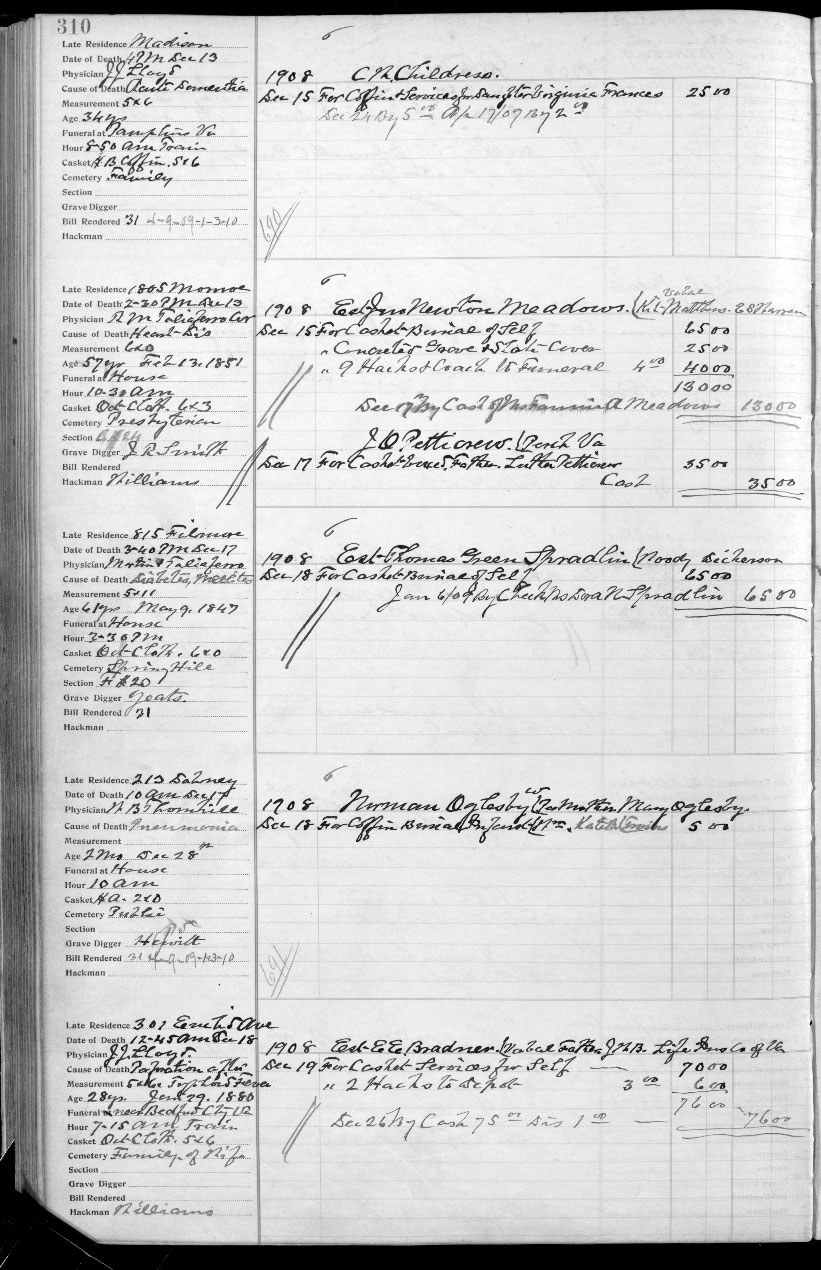 310
Late Residence Madison
Date of Death 4 PM Dec 13
Physician J J Lloyd
Cause of Death Acute Dementia
Measurement 5x6
Age 34 yrs
Funeral at Pamplins Va
Hour 8-50 am Train
Casket Coffin. 5x6
Cemetery Family
Section
Grave Digger
Bill Rendered 31 4-9-09-1-3-10
Hackman
1908 C Childress.
Dec 15 For Coffin & Services for Daughter Virginia Frances 25 00
Dec 24 By 5 00 Apr 17/09 By 2 00
690
Late Residence 1805 Monroe
Date of Death 2-30 PM Dec 13
Physician Taliaferro
Cause of Death Heart Dis
Measurement 6x0
Age 57 yrs Feb 13. 1851
Funeral at House
Hour 10-30 am
Casket Oct Cloth. 6x3
Cemetery Presbyterian
Section
Grave Digger J R Smith
Bill Rendered
Hackman Williams
1908 Est Jno Newton Meadows.
Dec 15 For Casket Burial of Self 65 00
" Concreted Grave & Slate Cover 25 00
" 9 Hacks & Coach to Funeral 4 00 40 00
130 00
By Cash of Mrs Meadows 130 00
J O Petticrew.
Dec 17 For Casket Father. Luther Petticrew 35 00
Cash 35 00
Late Residence 815 Filmore
Date of Death 3-40 PM Dec 17
Physician Martin & Taliaferro
Cause of Death Diabetes,
Measurement 5x11
Age 61 yrs May 9. 1847
Funeral at House
Hour 3-30 PM
Casket Oct Cloth. 6x0
Cemetery Spring Hill
Section # 20
Grave Digger Yeats.
Bill Rendered 31
Hackman
1908 Est Thomas Green Spradlin (Moody Dickerson
Dec 18 For Casket Burial of Self 65 00
Jan 6/09 By Check Mrs Dora N Spradlin 65 00
Late Residence 213 Dabney
Date of Death 10 am Dec 17
Physician Thornhill
Cause of Death Pneumonia
Measurement
Age 2 Mo Dec 28th
Funeral at House
Hour 10 am
Casket 2x0
Cemetery Public
Section
Grave Digger Hewitt
Bill Rendered 31 4-9-09-1-3-10
Hackman
1908 Norman Oglesby (Per Mother Mary Oglesby
Dec 18 For Coffin Burial Infant 5 00
691
Late Residence 301 Euclid Ave
Date of Death 12-45 am Dec 18
Physician J J Lloyd.
Cause of Death after
Measurement Typhoid Fever
Age 28 yrs. Jan 29. 1880
Funeral near Bedford City Va
Hour 7-15 am Train
Casket Oct Cloth. 5x6
Cemetery Family of Wife
Section
Grave Digger
Bill Rendered
Hackman Williams
1908 Est E E Bradner. (Verbal Father Life Ins Co of Va
Dec 19 For Casket Services for Self 70 00
" 2 Hacks to Depot 3 00 6 00
76 00
Dec 26 By Cash 75 00 Dis 1 00 76 00